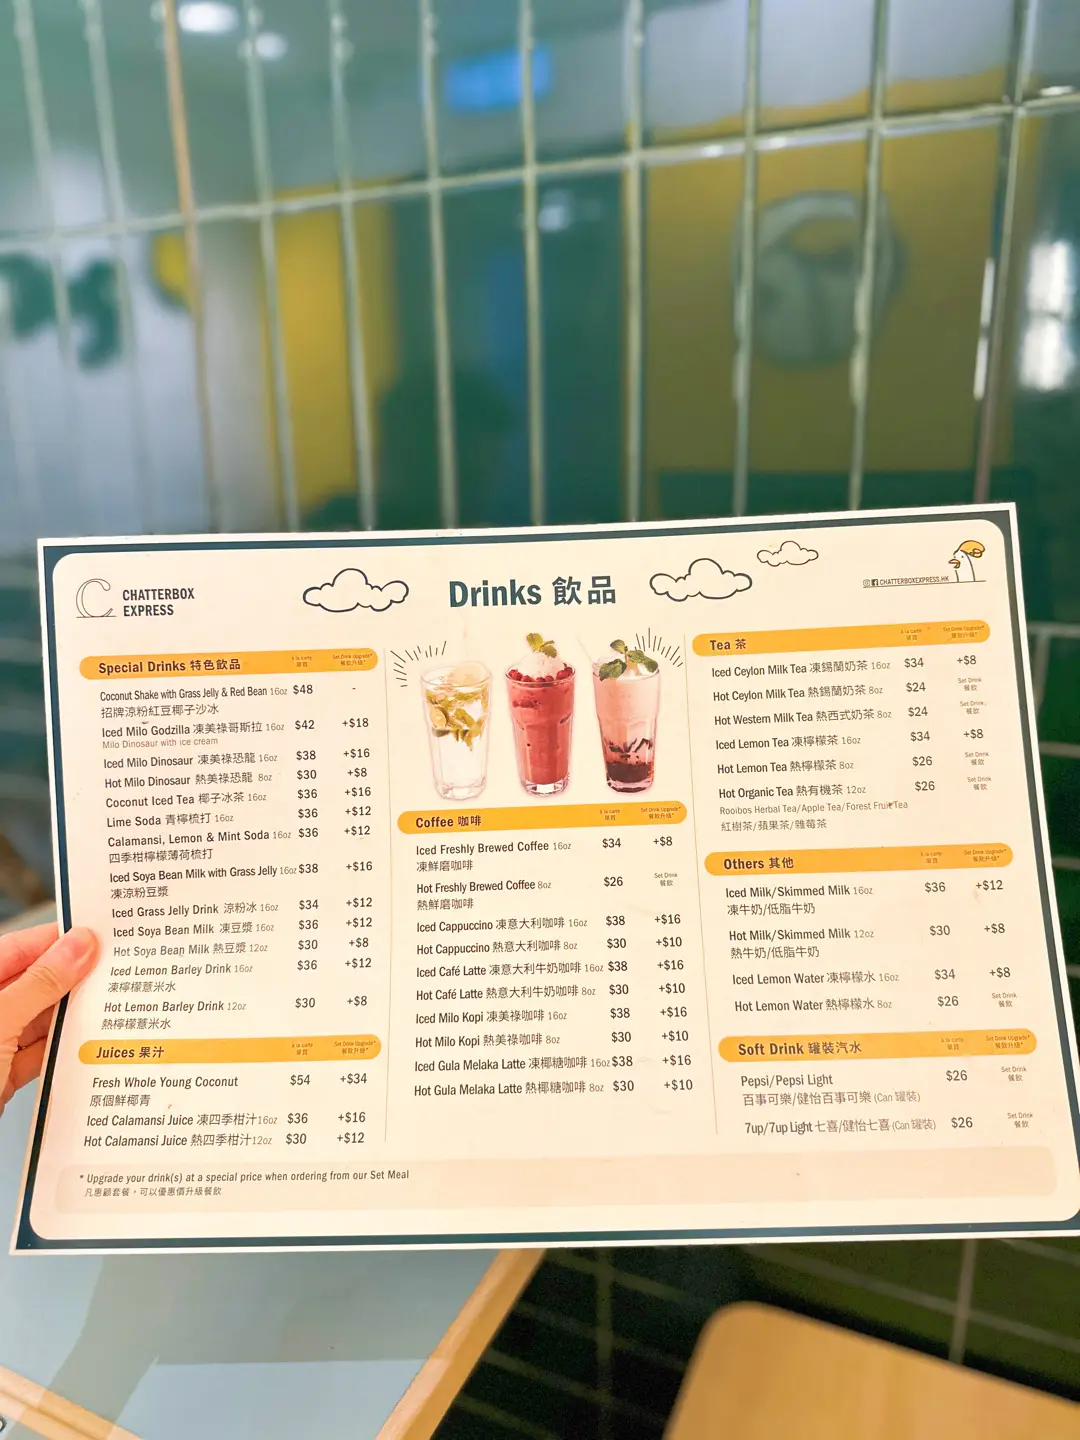 CHATTERBOX
EXPRESS
Drinks 飲品
CHATTERBOXEXPRESS.HK
Special Drinks 特色飲品 À la carte 單買 Set Drink Upgrade* 餐飲升級*
Coconut Shake with Grass Jelly & Red Bean 16oz $48 -
招牌涼粉紅豆椰子沙冰
Iced Milo Godzilla 凍美祿哥斯拉 16oz $42 +$18
Milo Dinosaur with ice cream
Iced Milo Dinosaur 凍美祿恐龍 16oz $38 +$16
Hot Milo Dinosaur 熱美祿恐龍 8oz $30 +$8
Coconut Iced Tea 椰子冰茶 16oz $36 +$16
Lime Soda 青檸梳打 16oz $36 +$12
Calamansi, Lemon & Mint Soda 16oz $36 +$12
四季柑檸檬薄荷梳打
Iced Soya Bean Milk with Grass Jelly 16oz $38 +$16
凍涼粉豆漿
Iced Grass Jelly Drink 涼粉冰 16oz $34 +$12
Iced Soya Bean Milk 凍豆漿 16oz $36 +$12
Hot Soya Bean Milk 熱豆漿 12oz $30 +$8
Iced Lemon Barley Drink 16oz $36 +$12
凍檸檬薏米水
Hot Lemon Barley Drink 12oz $30 +$8
熱檸檬薏米水
Juices 果汁 À la carte 單買 Set Drink Upgrade* 餐飲升級*
Fresh Whole Young Coconut $54 +$34
原個鮮椰青
Iced Calamansi Juice 凍四季柑汁 16oz $36 +$16
Hot Calamansi Juice 熱四季柑汁 12oz $30 +$12
Coffee 咖啡 À la carte 單買 Set Drink Upgrade* 餐飲升級*
Iced Freshly Brewed Coffee 16oz $34 +$8
凍鮮磨咖啡
Hot Freshly Brewed Coffee 8oz $26 Set Drink 餐飲
熱鮮磨咖啡
Iced Cappuccino 凍意大利咖啡 16oz $38 +$16
Hot Cappuccino 熱意大利咖啡 8oz $30 +$10
Iced Café Latte 凍意大利牛奶咖啡 16oz $38 +$16
Hot Café Latte 熱意大利牛奶咖啡 8oz $30 +$10
Iced Milo Kopi 凍美祿咖啡 16oz $38 +$16
Hot Milo Kopi 熱美祿咖啡 8oz $30 +$10
Iced Gula Melaka Latte 凍椰糖咖啡 16oz $38 +$16
Hot Gula Melaka Latte 熱椰糖咖啡 8oz $30 +$10
Tea 茶 À la carte 單買 Set Drink Upgrade* 餐飲升級*
Iced Ceylon Milk Tea 凍錫蘭奶茶 16oz $34 +$8
Hot Ceylon Milk Tea 熱錫蘭奶茶 8oz $24 Set Drink 餐飲
Hot Western Milk Tea 熱西式奶茶 8oz $24 Set Drink 餐飲
Iced Lemon Tea 凍檸檬茶 16oz $34 +$8
Hot Lemon Tea 熱檸檬茶 8oz $26 Set Drink 餐飲
Hot Organic Tea 熱有機茶 12oz $26 Set Drink 餐飲
Rooibos Herbal Tea/Apple Tea/Forest Fruit Tea
紅樹茶/蘋果茶/雜莓茶
Others 其他 À la carte 單買 Set Drink Upgrade* 餐飲升級*
Iced Milk/Skimmed Milk 16oz $36 +$12
凍牛奶/低脂牛奶
Hot Milk/Skimmed Milk 12oz $30 +$8
熱牛奶/低脂牛奶
Iced Lemon Water 凍檸檬水 16oz $34 +$8
Hot Lemon Water 熱檸檬水 8oz $26 Set Drink 餐飲
Soft Drink 罐裝汽水 À la carte 單買 Set Drink Upgrade* 餐飲升級*
Pepsi/Pepsi Light $26 Set Drink 餐飲
百事可樂/健怡百事可樂 (Can 罐裝)
7up/7up Light 七喜/健怡七喜 (Can 罐裝) $26 Set Drink 餐飲
* Upgrade your drink(s) at a special price when ordering from our Set Meal
凡惠顧套餐，可以優惠價升級餐飲